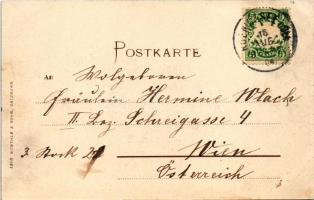 POSTKARTE
An Wolgeboren
Fräulein Hermine Wlach
II. Bez. Schreigasse 4
3. Stock 2
Wien
Österreich